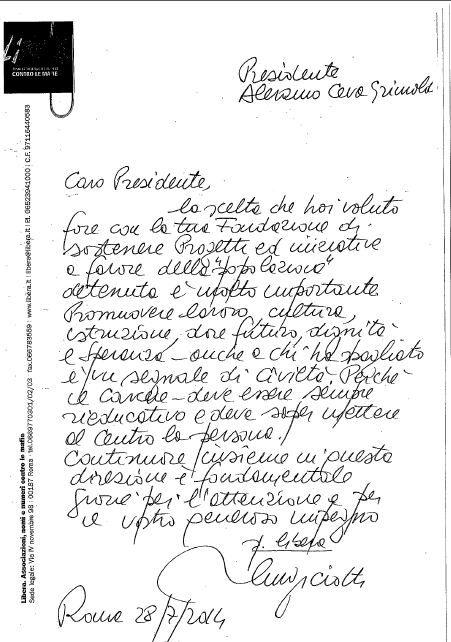 Libera
CONTRO LE MAFIE
Presidente
Aleramo Ceva Grimaldi
Caro Presidente,
la scelta che hai voluto
fare con la tua Fondazione di
sostenere Progetti ed iniziative
a favore della "popolazione"
detenuta è molto importante.
Promuovere lavoro, cultura,
istruzione, dare futuro, dignità
e speranza - anche a chi ha sbagliato
è un segnale di civiltà. Perché
il carcere - deve essere sempre
rieducativo e deve saper mettere
al centro la persona.
Continuare insieme in questa
direzione è fondamentale
Grazie per l'attenzione e per
il vostro generoso impegno
p. Libera
Luigi Ciotti
Roma 28/7/2014
Libera. Associazioni, nomi e numeri contro le mafie
Sede legale: Via IV novembre 98 : 00187 Roma : tel.0669770301/02/03 fax.066783559 : www.libera.it : libera@libera.it : P.I. 06523941000 : C.F. 97116440583